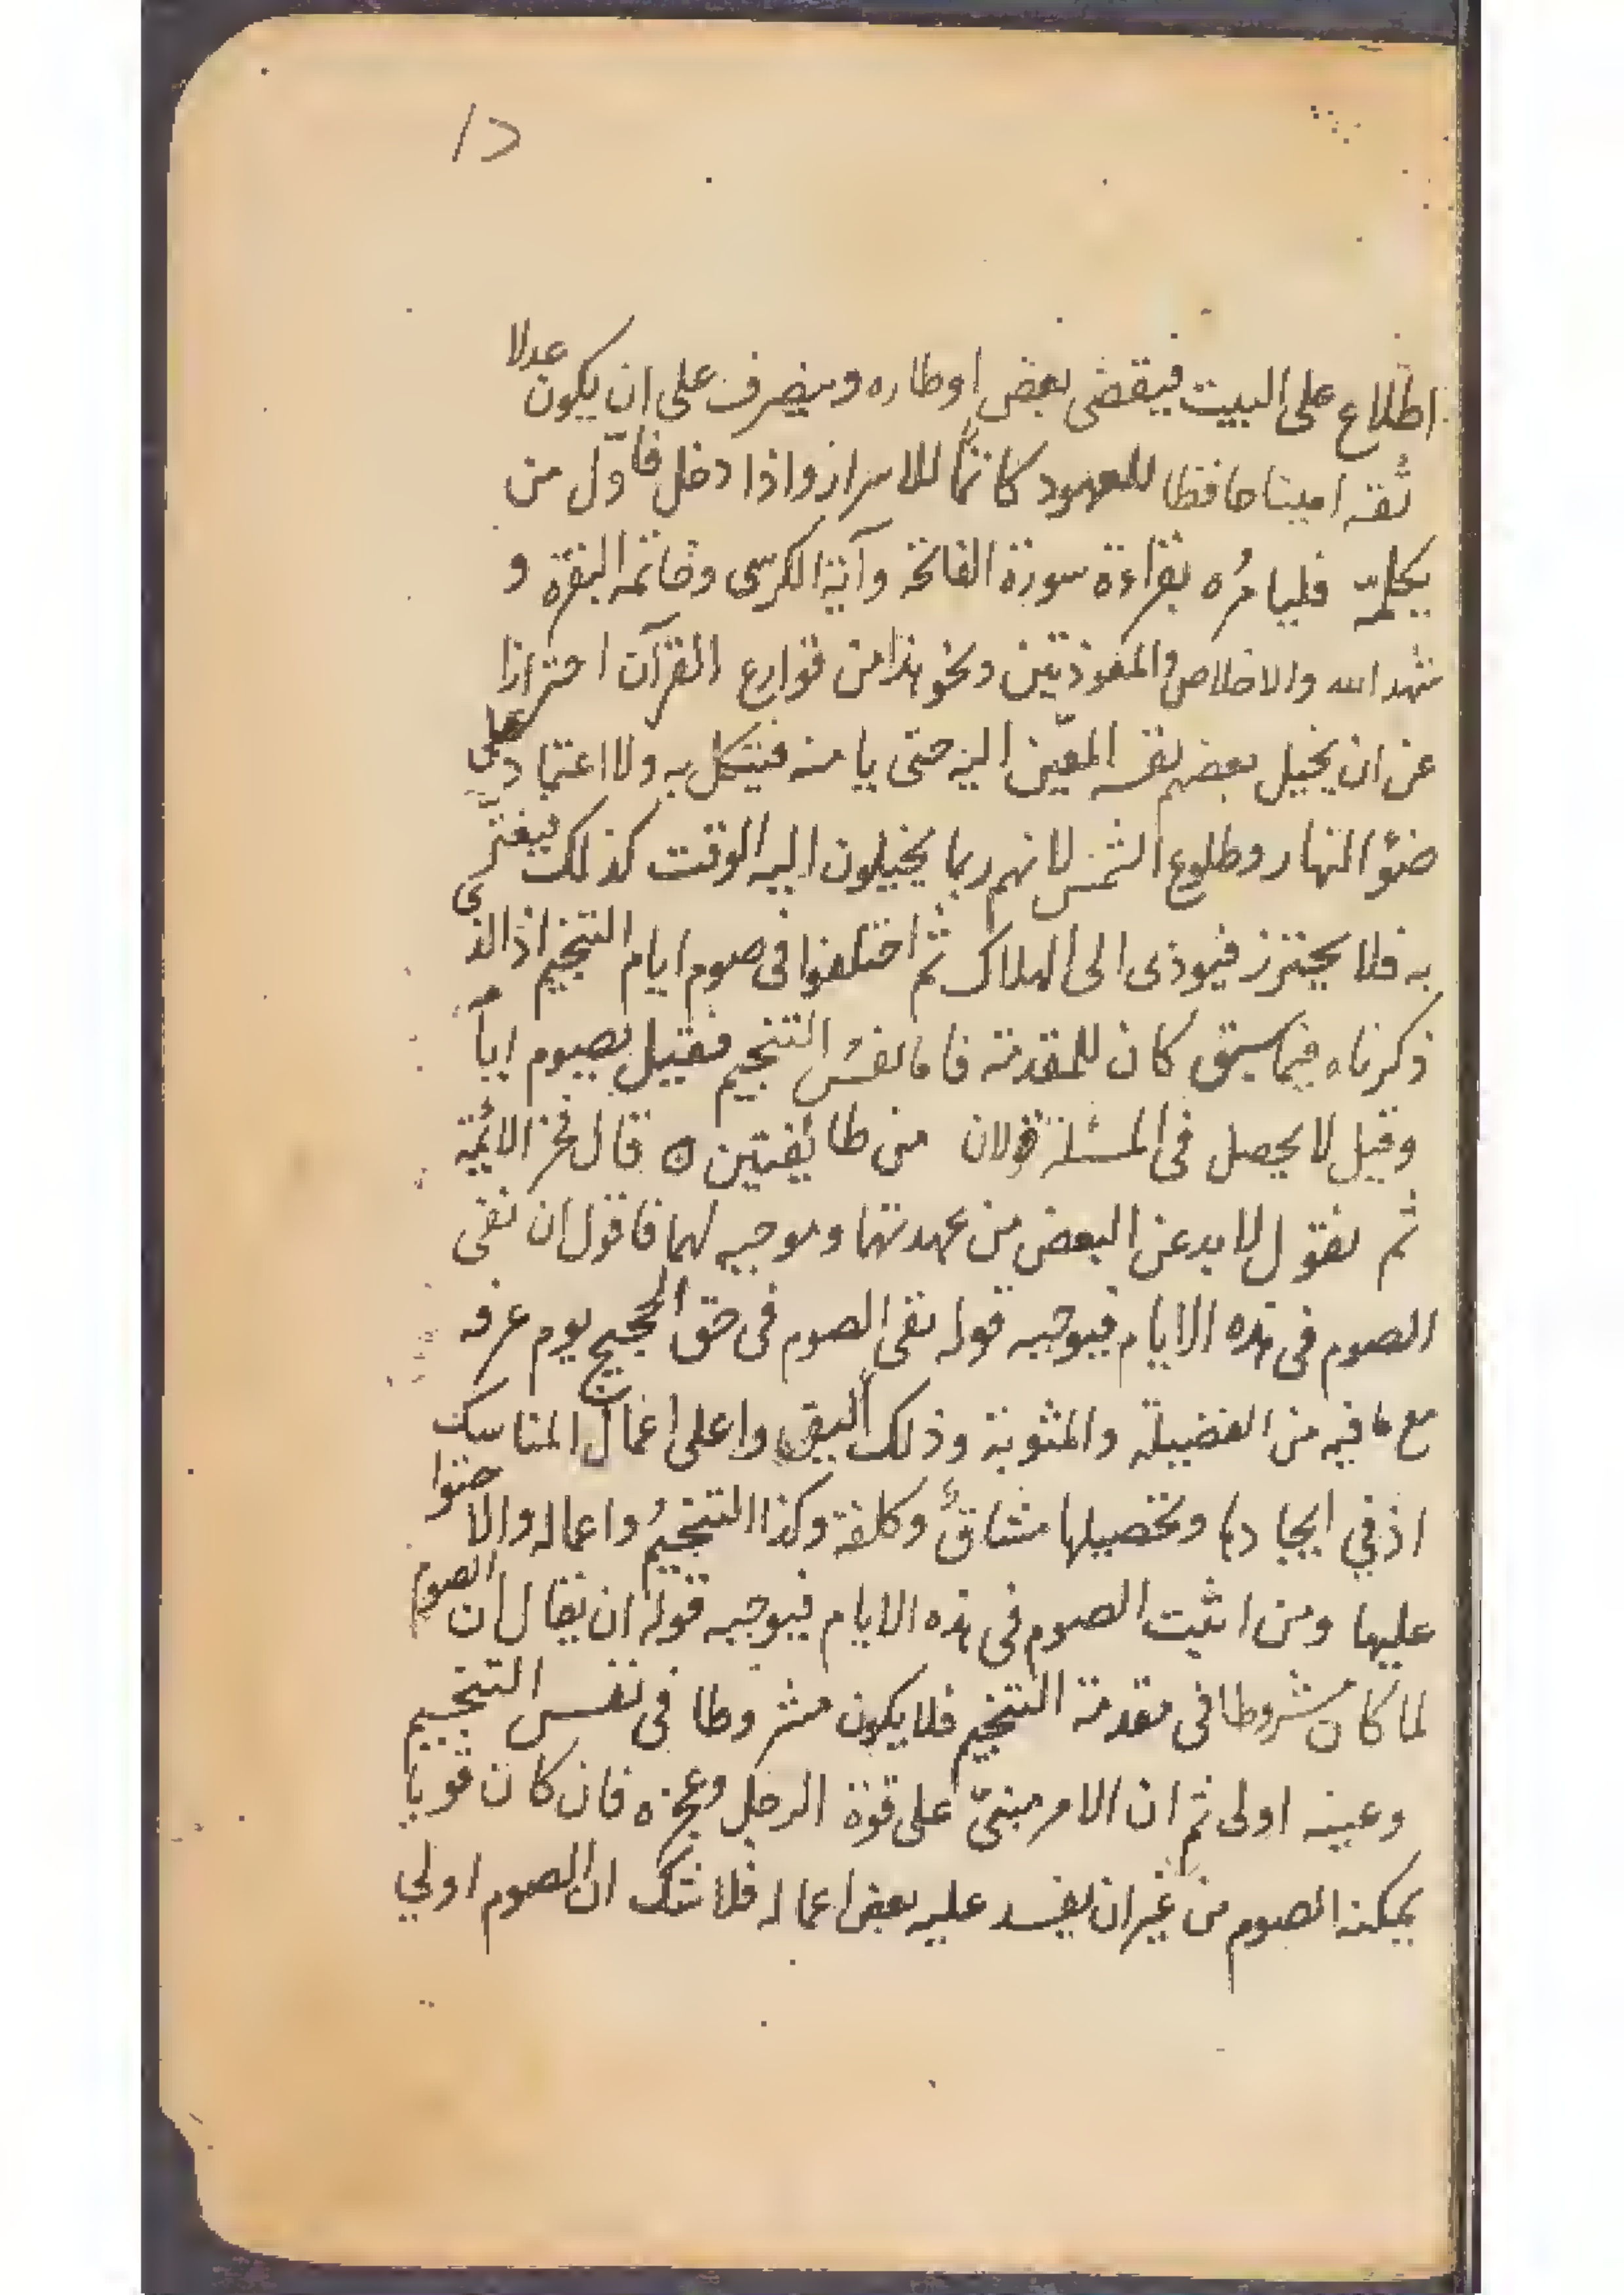 د/
اطلاع على البيت فيقضى بعض اوطاره وينصرف على ان يكون عدلا
ثقه امينا حافظا للعهود كاتما للاسرار واذا دخل فاول من
يكلمه فليامره بقراءة سورة الفاتحة وآية الكرسى وخاتمه البقرة و
شهد الله والاخلاص والمعوذتين ونحو هذا من قوارع القرآن احترازا
عن ان يخيل بعضهم نفسه المعين اليه حتى يا منه فيتكل به ولا اعتماد على
ضوء النهار وطلوع الشمس لانهم ربما يخيلون اليه الوقت كذلك فيغتر
به فلا يحترز فيوذى الى الهلاك ثم اختلفوا فى صوم ايام التنجيم اذ الذى
ذكرناه فيما سبق كان للمقدمة فاما نفس التنجيم فقيل بصوم
وقيل لا يحصل فى المسئلة قولان من طائفتين قال فخر الائمة
ثم نقول لا بد عن البعض من عهدتها وموجبه لهما فاقول ان نفى
الصوم فى هذه الايام فيوجبه قوله نفى الصوم فى حق الحجيج يوم عرفه
مع ما فيه من الفضيلة والمثوبة وذلك اليق واعلى اعمال المناسك
اذ في ايجادها وتحصيلها مشاق وكلفة وكذا التنجيم واعماله والا حتوا
عليها ومن اثبت الصوم فى هذه الايام فيوجبه قوله ان يقال ان الصوم
لما كان مشروطا فى مقدمة التنجيم فلا يكون مشروطا فى نفس التنجيم
وعينه اولى ثم ان الامر مبنى على قوة الرجل وعجزه فان كان قويا
يمكنه الصوم من غير ان يفسد عليه بعض اعماله فلا شك ان الصوم اولي